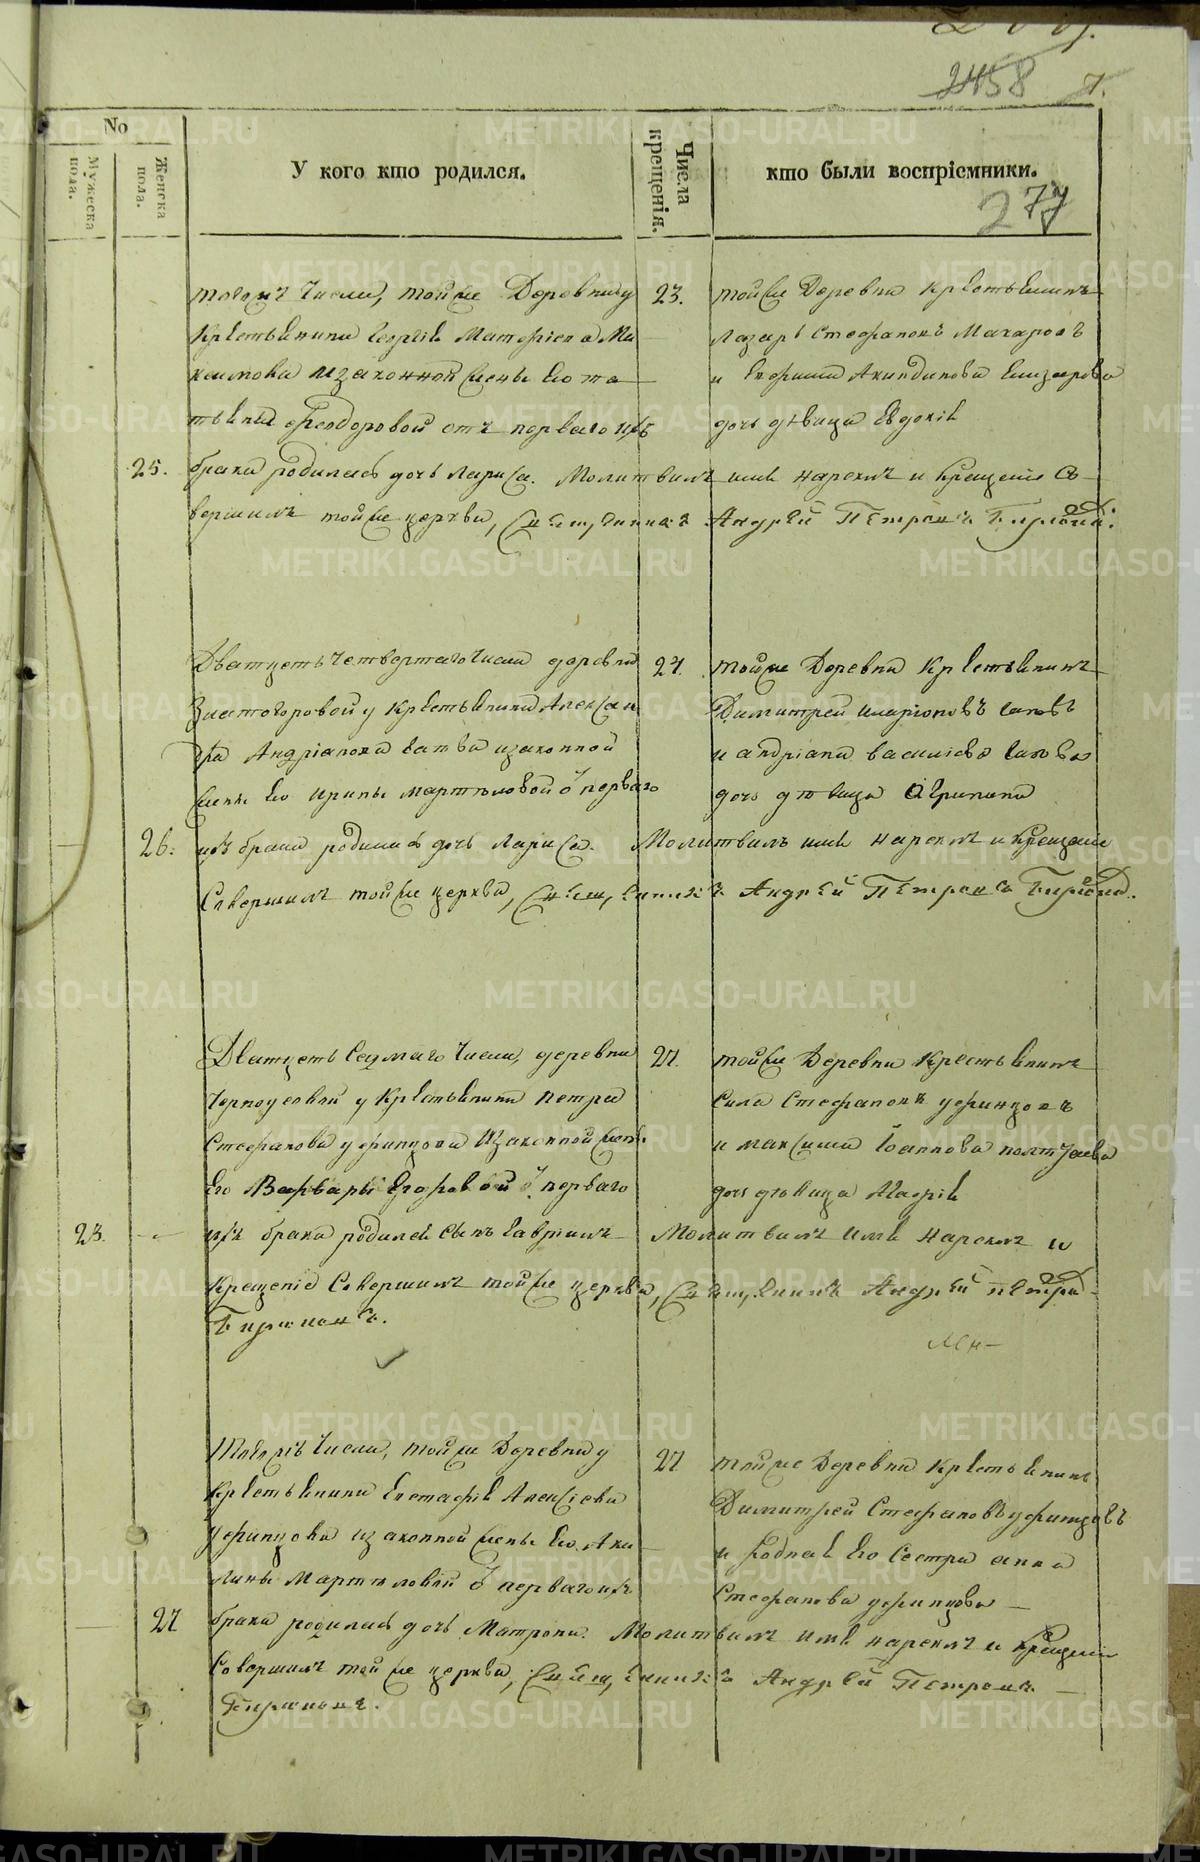 2458 7.
277
No
Мужеска пола.
Женска пола.
У кого кто родился.
Числа крещенія.
кто были воспріемники.
тогожъ Числа, тойже Деревни у
Крестьянина Георгія Матфіева Ма
кзаконной жены Его та
тьяны Феодоровой отъ перваго ихъ
25. брака родилась дочь Лариса. Молитвилъ имя нареклъ и Крещеніе Со
вершилъ тойже церкви, Священникъ Андрей Петровъ Бирюковъ.
23. тойже Деревни Крестьянинъ
Лазарь Стефановъ Макаровъ
и Акиндинова Елизарова
дочь дѣвица Евдокія
Дватцеть четвертаго Числа деревни
Златогоровой у Крестьянина Алексан
дра Андріанова Ватва изаконной
жены Его Ирины Мартемовой ѿ перваго
26. ихъ брака родилась дочь Лариса. Молитвилъ имя нареклъ и Крещеніе
Совершилъ тойже церкви, Священникъ Андрей Петровъ Бирюковъ.
27. тойже Деревни Крестьянинъ
Димитрей Иларіоновъ
и Андріана Василіева
дочь дѣвица Агрипина
Дватцеть Седмаго Числа, деревни
Черноусовой у Крестьянина Петра
Стефанова Уфинцова Изаконной жены
Его Варвары Егоровой ѿ перваго
23. ихъ брака родился Сынъ Гавріилъ Молитвилъ Имя Нареклъ и
Крещеніе Совершилъ тойже церкви, Священникъ Андрей Петров
Бирюковъ.
27. тойже Деревни Крестьянинъ
Сила Стефановъ Уфинцовъ
и Максима Іоаннова
дочь дѣвица Марія
Тогожъ Числа, тойже Деревни у
Крестьянина Евстафія Алексіева
Уфинцова изаконной жены Его Аки
лины Мартемовой ѿ перваго ихъ
27 брака родилась дочь Матрона. Молитвилъ имя нареклъ и Крещеніе
Совершилъ тойже церкви, Священникъ Андрей Петровъ
Бирюковъ.
27 тойже Деревни Крестьянинъ
Димитрей Стефановъ Уфинцовъ
и родная Его Сестра Анна
Стефанова Уфинцова
METRIKI.GASO-URAL.RU